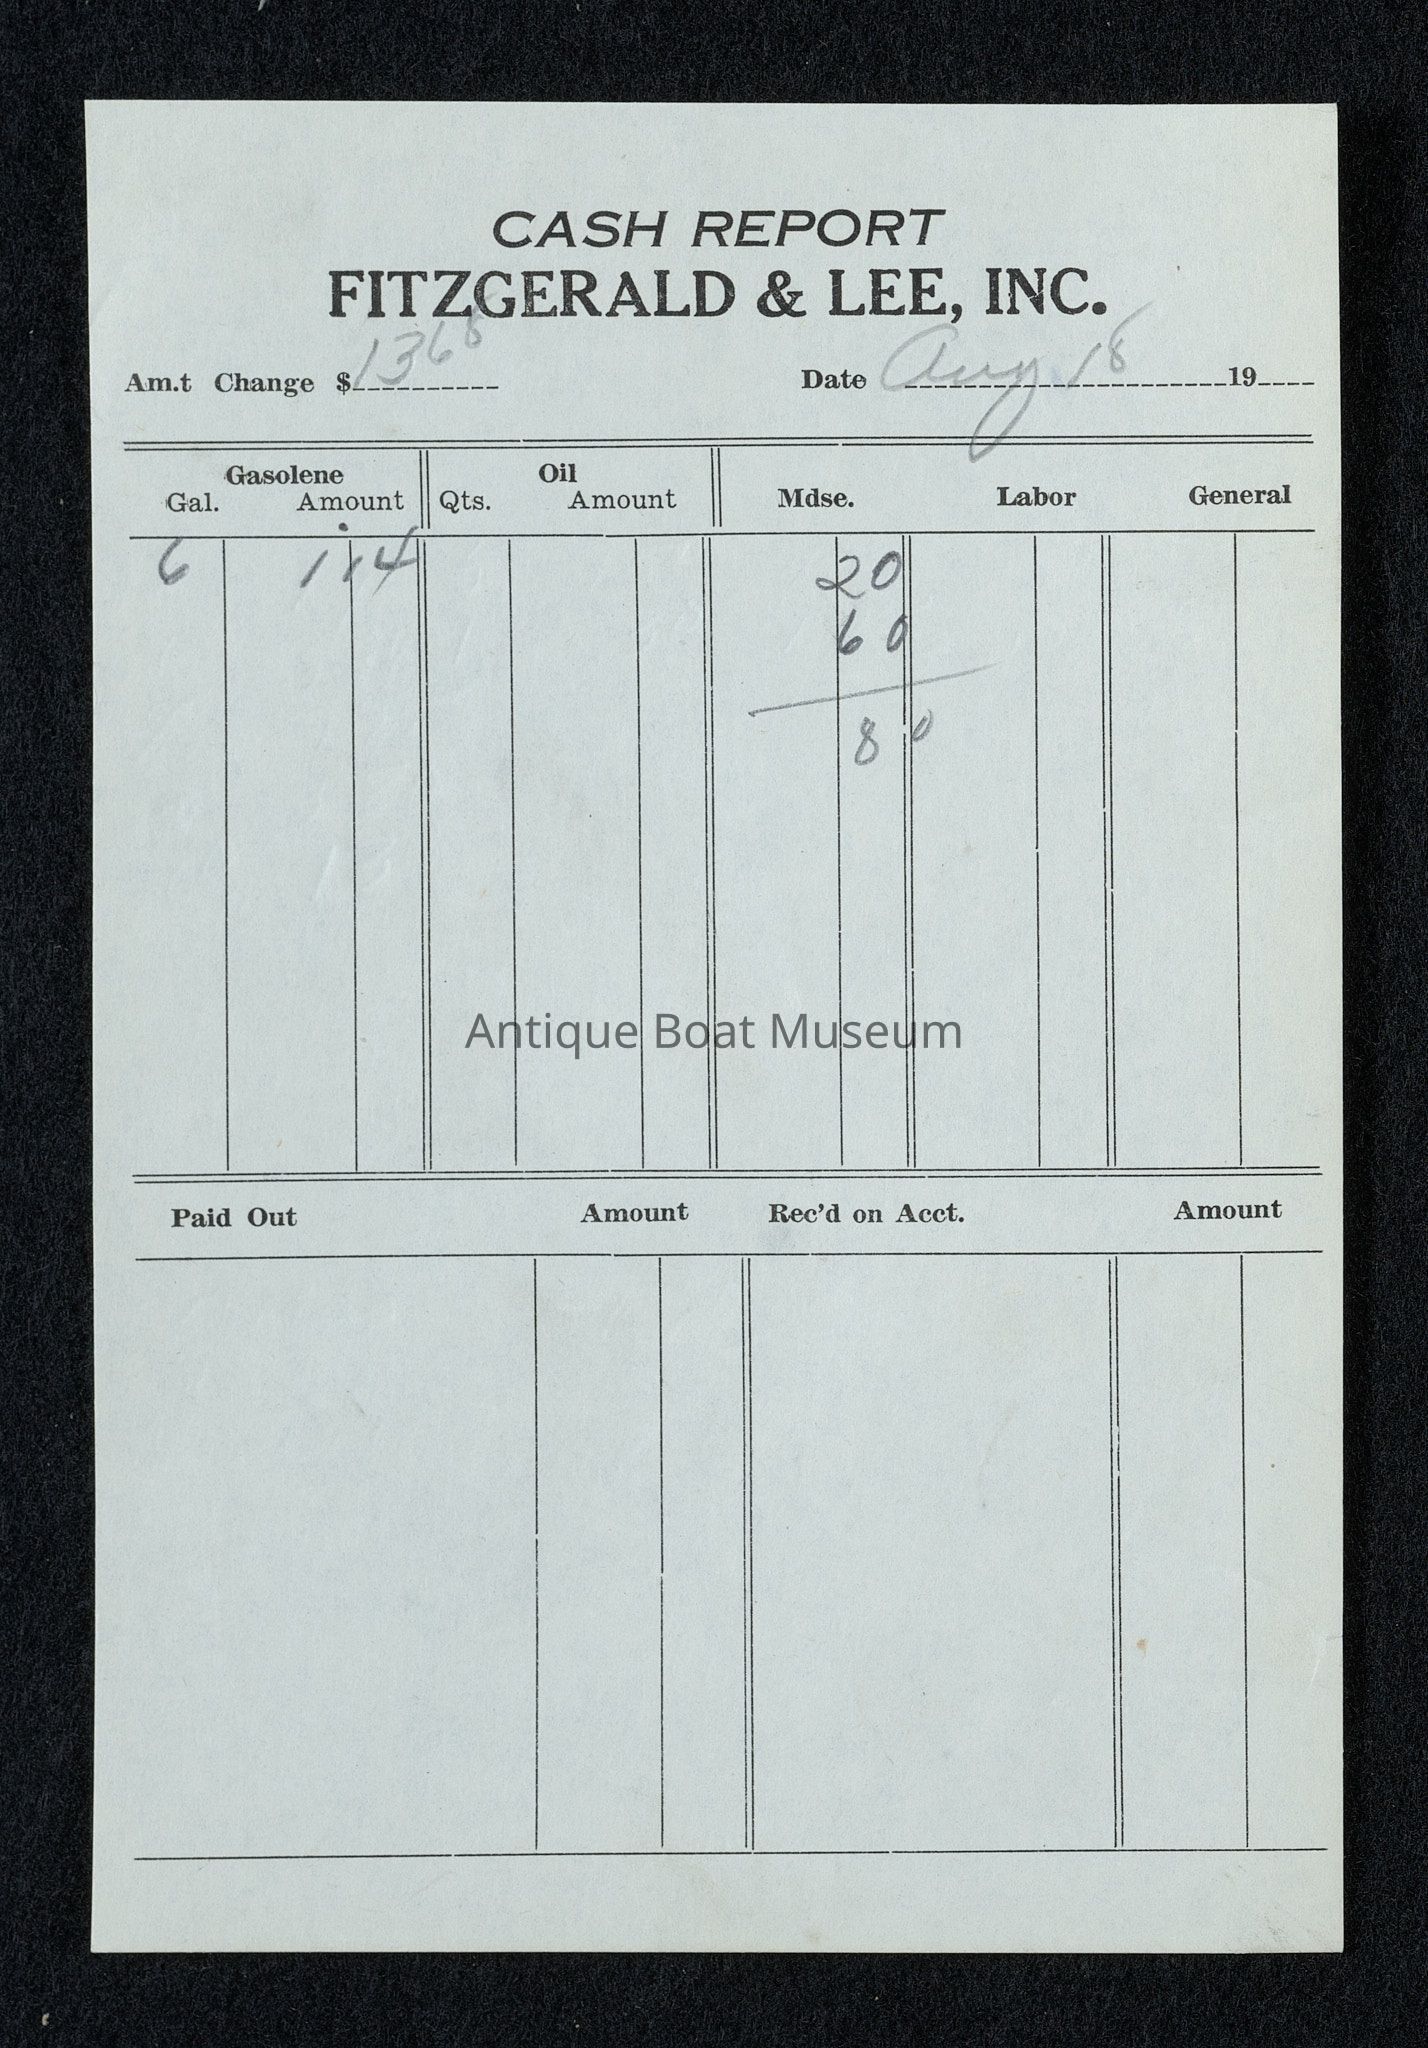 CASH REPORT
FITZGERALD & LEE, INC.
Am.t Change $ 1368 Date Aug 18 19
Gasolene Oil
Gal. Amount Qts. Amount Mdse. Labor General
6 1.14 20
60
80
Antique Boat Museum
Paid Out Amount Rec'd on Acct. Amount